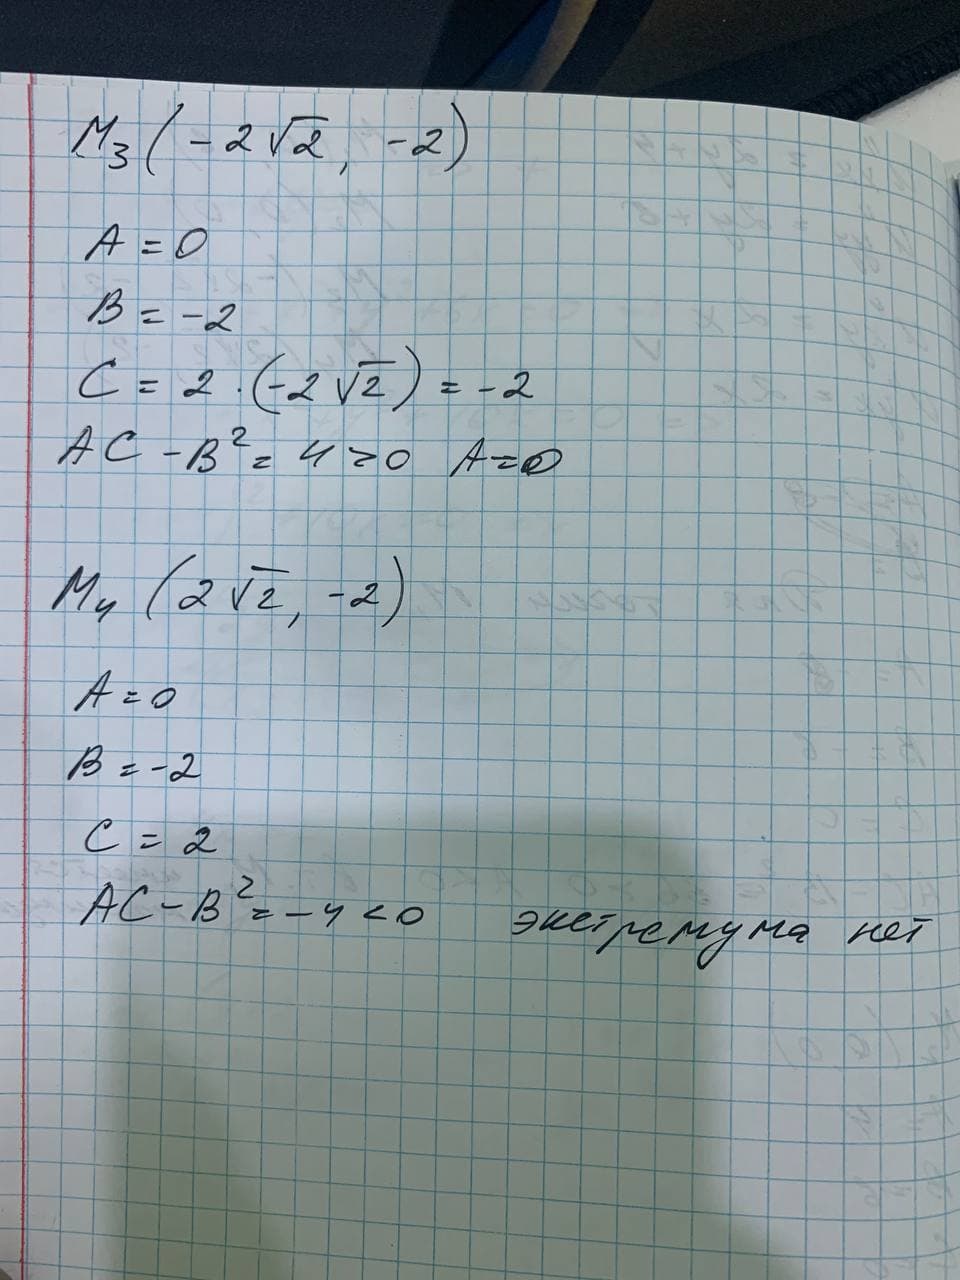 M₃ (-2√2, -2)
A = 0
B = -2
C = 2 · (-2√2) = -2
AC - B² = 4 > 0 A = 0
M₄ (2√2, -2)
A = 0
B = -2
C = 2
AC - B² = -4 < 0 экстремума нет